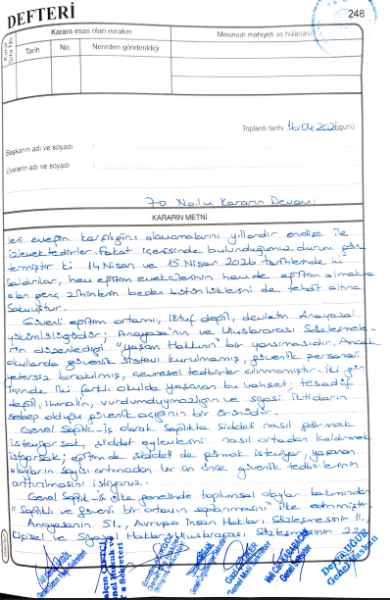 DEFTERİ
248
Karar Sıra No.
Karara esas olan evrakın
Mevzuun mahiyeti ve hülasası
Tarih
No.
Nereden gönderildiği
Toplantı tarihi 16/04/2026 günü
Başkanın adı ve soyadı :
Üyelerin adı ve soyadı :
70 No.lu Kararın Devamı
KARARIN METNİ
leri emeğin karşılığını alamamalarını yıllardır endişe ile
izlemektedirler. Fakat içerisinde bulunduğumuz durum gös
termiştir ki 14 Nisan ve 15 Nisan 2026 tarihlerinde ki
saldırılar, hem eğitim emekçilerinin hem de eğitim almakta
olan genç zihinlerin beden bütünlüklerini de tehdit altına
sokmuştur.
Güvenli eğitim ortamı, lütuf değil, devletin Anayasal
yükümlülüğüdür; Anayasa'nın ve Uluslararası Sözleşmele-
rin düzenlediği "yaşam Hakkının" bir yansımasıdır. Ancak
okullarda güvenlik sistemi kurulmamış, güvenlik personeli
yetersiz bırakılmış, çevresel tedbirler alınmamıştır. İki gün
içinde iki farklı okulda yaşanan bu vahşet; tesadüf
değil, ihmalin, vurdumduymazlığın ve siyasi iktidarın
sebep olduğu güvenlik açığının bir ürünüdür.
Genel Sağlık-İş olarak sağlıkta şiddeti nasıl görmek
istemiyorsak, şiddet eylemlerini nasıl ortadan kaldırmak
istiyorsak; eğitimde şiddeti de görmek istemiyor, yaşanan
olayların sayısı artmadan bir an önce güvenlik tedbirlerinin
arttırılmasını istiyoruz.
Genel Sağlık-İş ülke genelinde toplumsal olaylar bakımından
"Sağlıklı ve Güvenli bir ortamın sağlanmasını" ilke edinmiştir.
Anayasanın 51., Avrupa İnsan Hakları Sözleşmesinin 11.
Kişisel ve Siyasi Haklar Uluslararası Sözleşmesinin 22.
Derya UĞUR
Genel Başkan